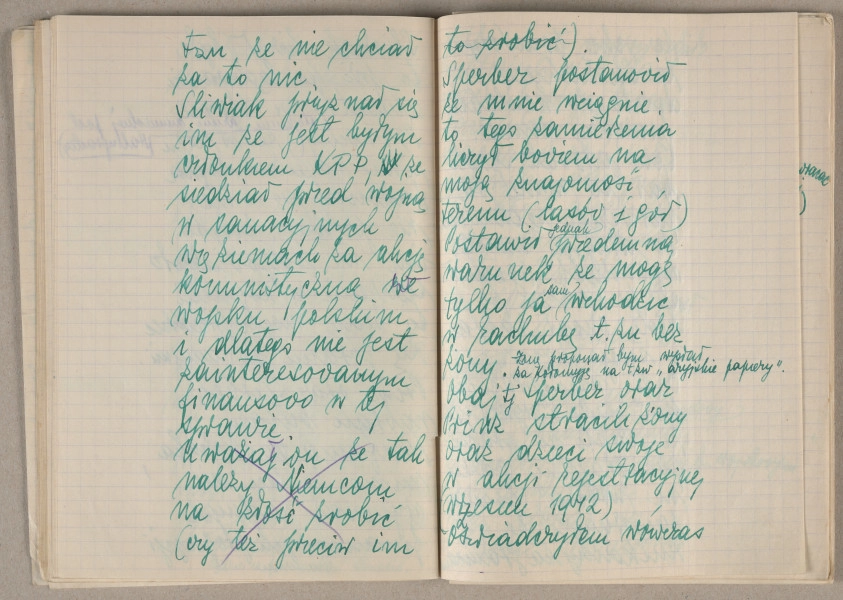 tam, że nie chciał
za to nic.
Śliwiak przyznał się
im że jest byłym
członkiem KPP, że
siedział przed wojną
w sanacyjnych
więzieniach za akcję
komunistyczną we
wojsku polskim
i dlatego nie jest
zainteresowanym
finansowo w tej
sprawie
Uważaj on że tak
należy Niemcom
na złość zrobić
(czy też przeciw im
to zrobić).
Sperber postanowił
że mnie wciągnie.
to tego zamierzenia
liczył bowiem na
moją znajomość
terenu (lasów i gór)
Postawił jednak przedemną
warunek że mogę
tylko ja sam wchodzić
w rachubę t. zn bez
żony. żonę proponował bym wysłał
za Kołomyję na t.zw „aryjskie papiery".
Obaj tj Sperber oraz
stracili żony
oraz dzieci swoje
w akcji rejestracyjnej
(wrzesień 1942)
Oświadczyłem wówczas